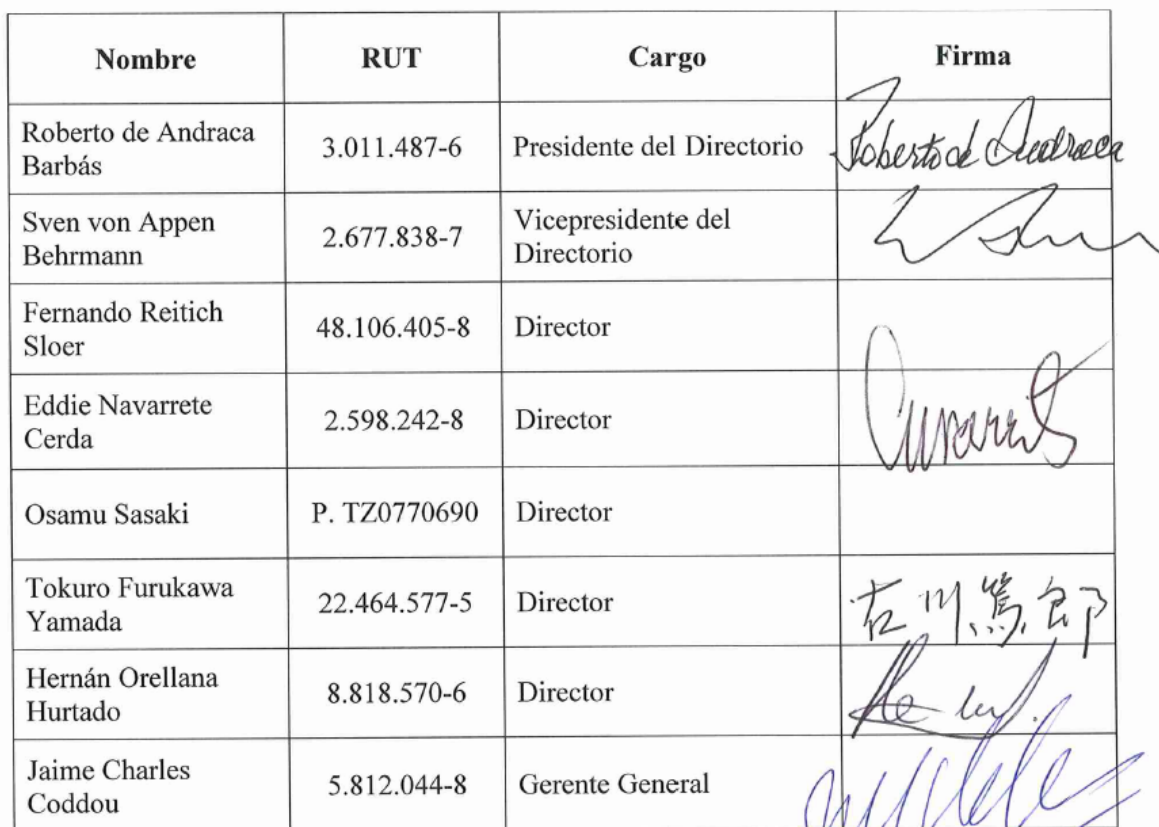 Nombre RUT Cargo Firma
Roberto de Andraca
Barbás
3.011.487-6
Presidente del Directorio
Roberto de Andraca
Sven von Appen
Behrmann
2.677.838-7
Vicepresidente del
Directorio
Fernando Reitich
Sloer
48.106.405-8
Director
Eddie Navarrete
Cerda
2.598.242-8
Director
Osamu Sasaki
P. TZ0770690
Director
Tokuro Furukawa
Yamada
22.464.577-5
Director
古川篤郎
Hernán Orellana
Hurtado
8.818.570-6
Director
Jaime Charles
Coddou
5.812.044-8
Gerente General